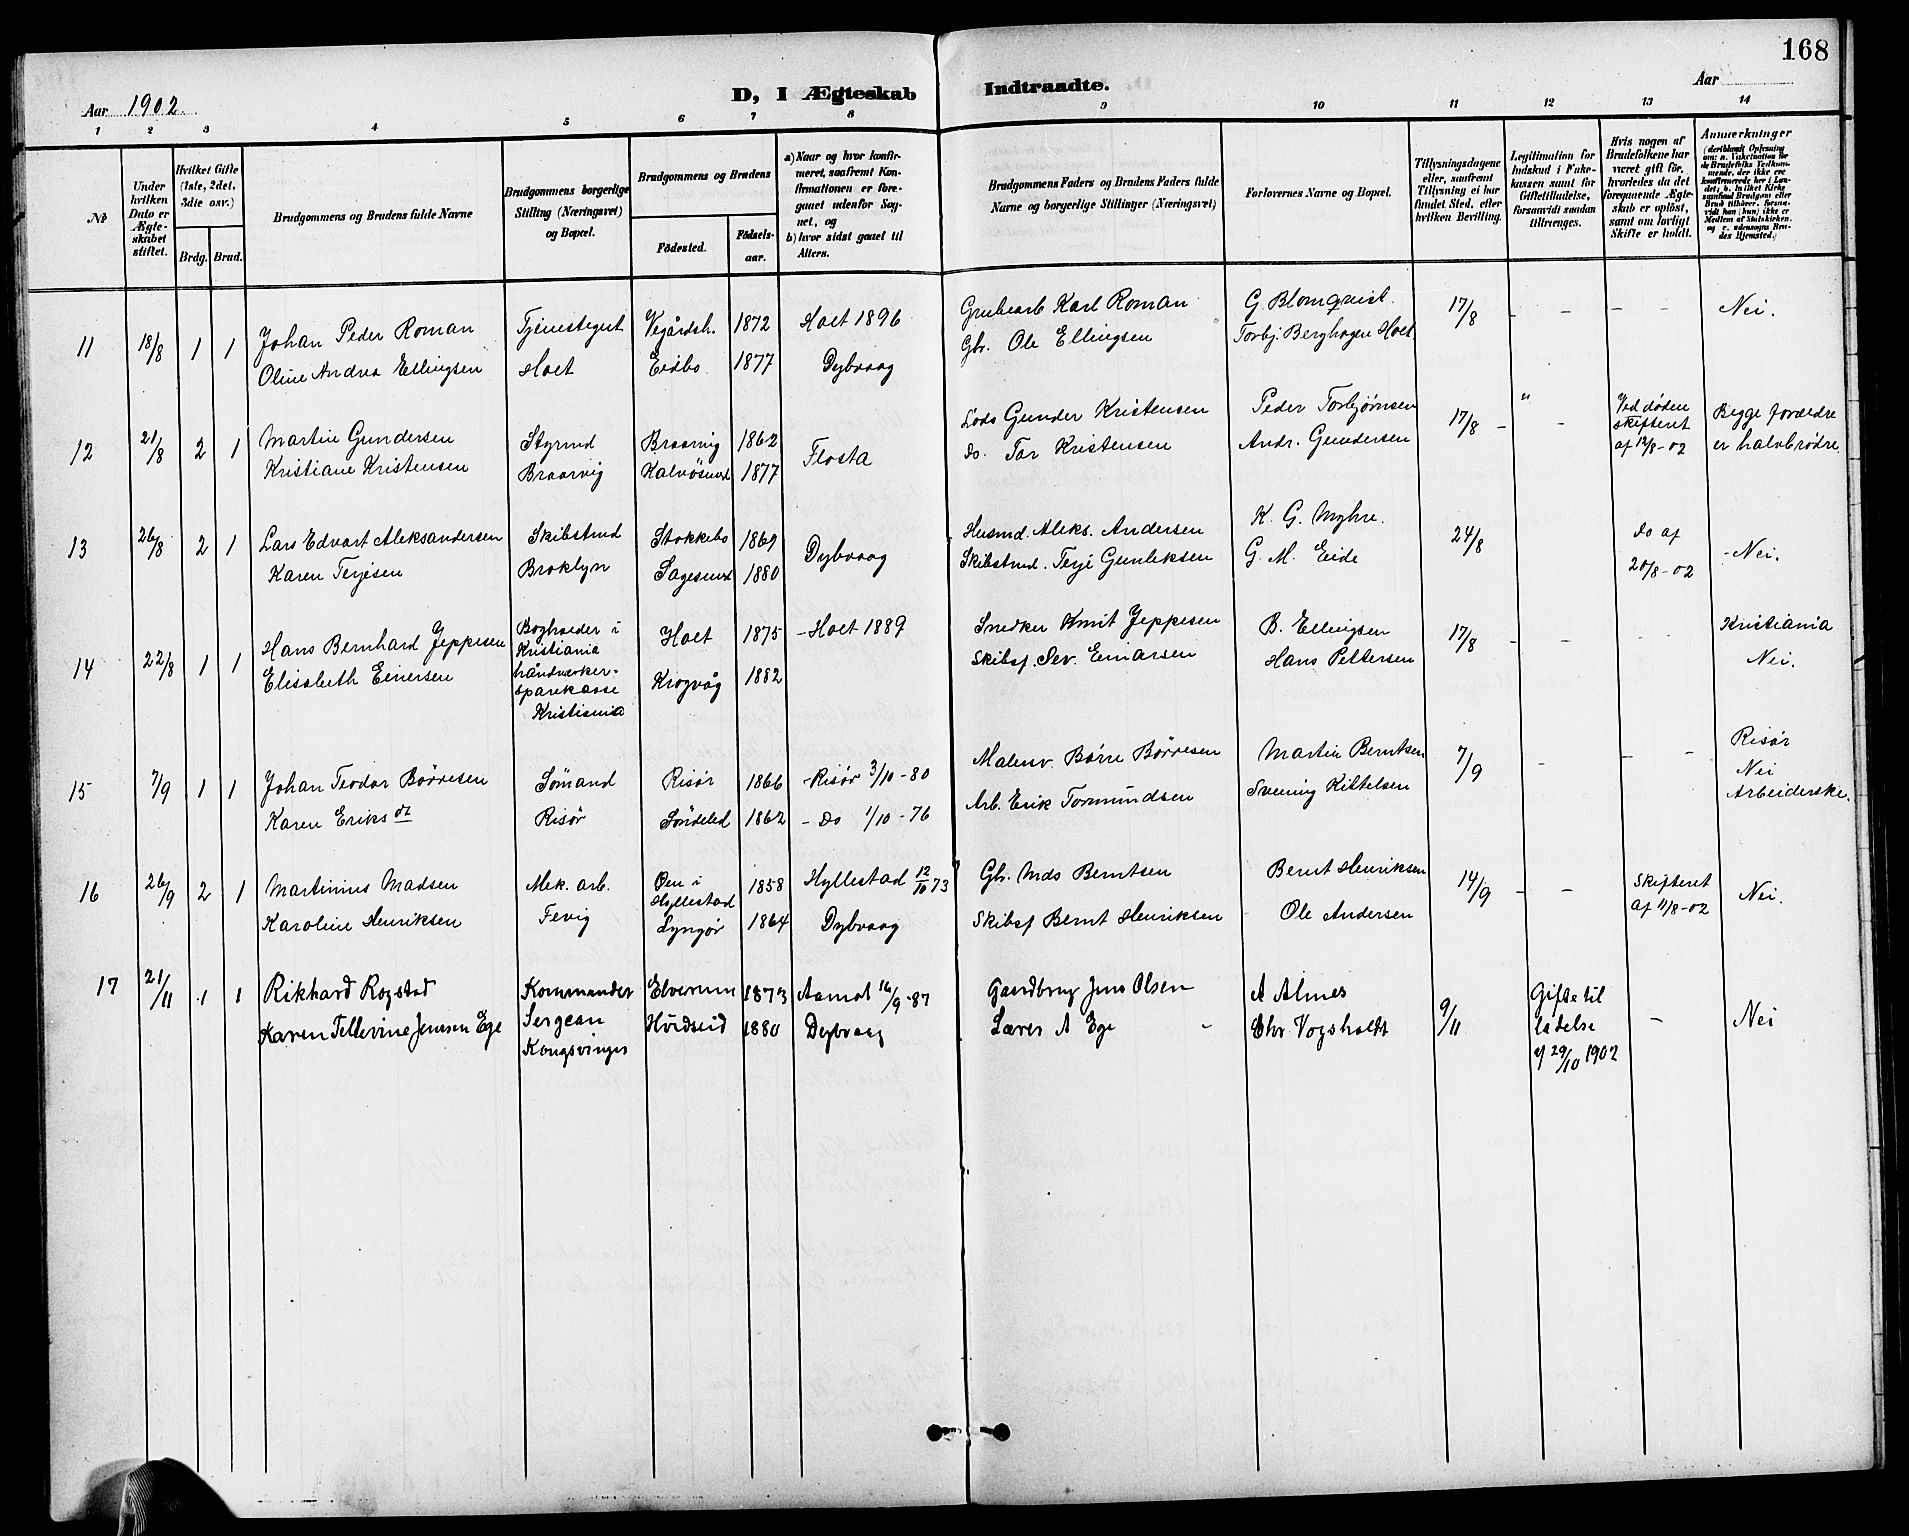 168
Aar 1902.
D, I Ægteskab Indtraadte.
Aar
1 2 3 4 5 6 7 8 9 10 11 12 13 14
No
Under hvilken Dato er Ægteskabet stiftet.
Hvilket Gifte (1ste, 2det, 3die osv.)
Brdg. Brud.
Brudgommens og Brudens fulde Navne
Brudgommens borgerlige Stilling (Næringsvei) og Bopæl.
Brudgommens og Brudens
Födested.
Födselsaar.
a) Naar og hvor konfirmeret, saafremt Konfirmationen er foregaaet udenfor Sognet, og
b) hvor sidst gaaet til Alters.
Brudgommens Faders og Brudens Faders fulde Navne og borgerlige Stillinger (Næringsvei)
Forlovernes Navne og Bopæl.
Tillysningsdagene eller, saafremt Tillysning ei har fundet Sted, efter hvilken Bevilling.
Legitimation for Indskud i Enkekassen samt for Giftetilladelse, forsaavidt saadan tiltrænges.
Hvis nogen af Brudefolkene har været gift før, hvorledes da det foregaaende Ægteskab er opløst, samt om lovligt Skifte er holdt.
Anmerkninger (deriblandt Oplysning om: a. Vakcination for de Brudefolks Vedkommende, der ikke ere konfirmerede her i Landet; b. hvilket Kirkesamfund Brudgom eller Brud tilhører, forsaavidt han (hun) ikke er Medlem af Statskirken, og c. udensogns Brudes Hjemsted.)
11 18/8 1 1 Johan Peder Roman Tjenestegut Vegårdsh. 1872 Holt 1896 Grubearb Karl Roman G. Blomqvist. 17/8 - - - - Nei.
Oline Andrea Ellingsen Holt Eidbo 1877 Dybvaag Gbr. Ole Ellingsen Torbj. Berghagen Holt.
12 21/8 2 1 Martin Gundersen Styrmd Braarvig 1862 Flosta Lods Gunder Kristensen Peder Torbjørnsen 17/8 - " - Ved døden skifteret af 12/8-02 Begge forældre er halvbrødre.
Kristiane Kristensen Braarvig Kalvøsund 1877 do. Tor Kristensen Andr. Gundersen
13 26/8 2 1 Lars Edvart Aleksandersen Skibstmd Stokkebo 1869 Dybvaag Husmd. Aleks. Andersen K. G. Myhre. 24/8 do af 20/8-02 - Nei.
Karen Terjesen Broklyn Sagesund 1880 Skibstmd. Terje Gunleksen G. M. Eide
14 22/8 1 1 Hans Bernhard Jeppesen Bogholder i Kristiania håndværkersparekasse Kristiania Holt 1875 - Holt 1889 Snedker Knut Jeppesen B. Ellingsen 17/8 - - Kristiania
Elisabeth Einersen Krogvåg 1882 Skibsf. Sev. Einarsen Hans Pettersen Nei.
15 7/9 1 1 Johan Teodor Börresen Sömand Risör 1866 - Risör 3/10-80 Malersv. Börre Börresen Martin Berntsen 7/9 - - - Risör Nei Arbeiderske.
Karen Eriks dt Risör Söndeled 1862 - Do 1/10-76 Arb. Erik Tormundsen Svening Kittelsen
16 26/9 2 1 Martinius Madsen Mek. arb. Øen i Hyllestad 1858 Hyllestad 12/10 73 Gbr. Mds Berntsen Bernt Henriksen 14/9 - - Skifteret af 11/8-02 Nei.
Karoline Henriksen Fevig Lyngör 1864 Dybvaag Skibsf Bernt Henriksen Ole Andersen
17 21/11 1 1 Rikhard Rogstad Kommander Elverum 1873 Aamot 16/9-87 Gaardbrug Jens Olsen A Almes 9/11 Gifte til ladelse af 29/10 1902 - Nei
Karen Tellevine Jensen Ege Sergean Kongsvinger Hvidseid 1880 Dybvaag Lærer A Ege Chr. Vogsholdt